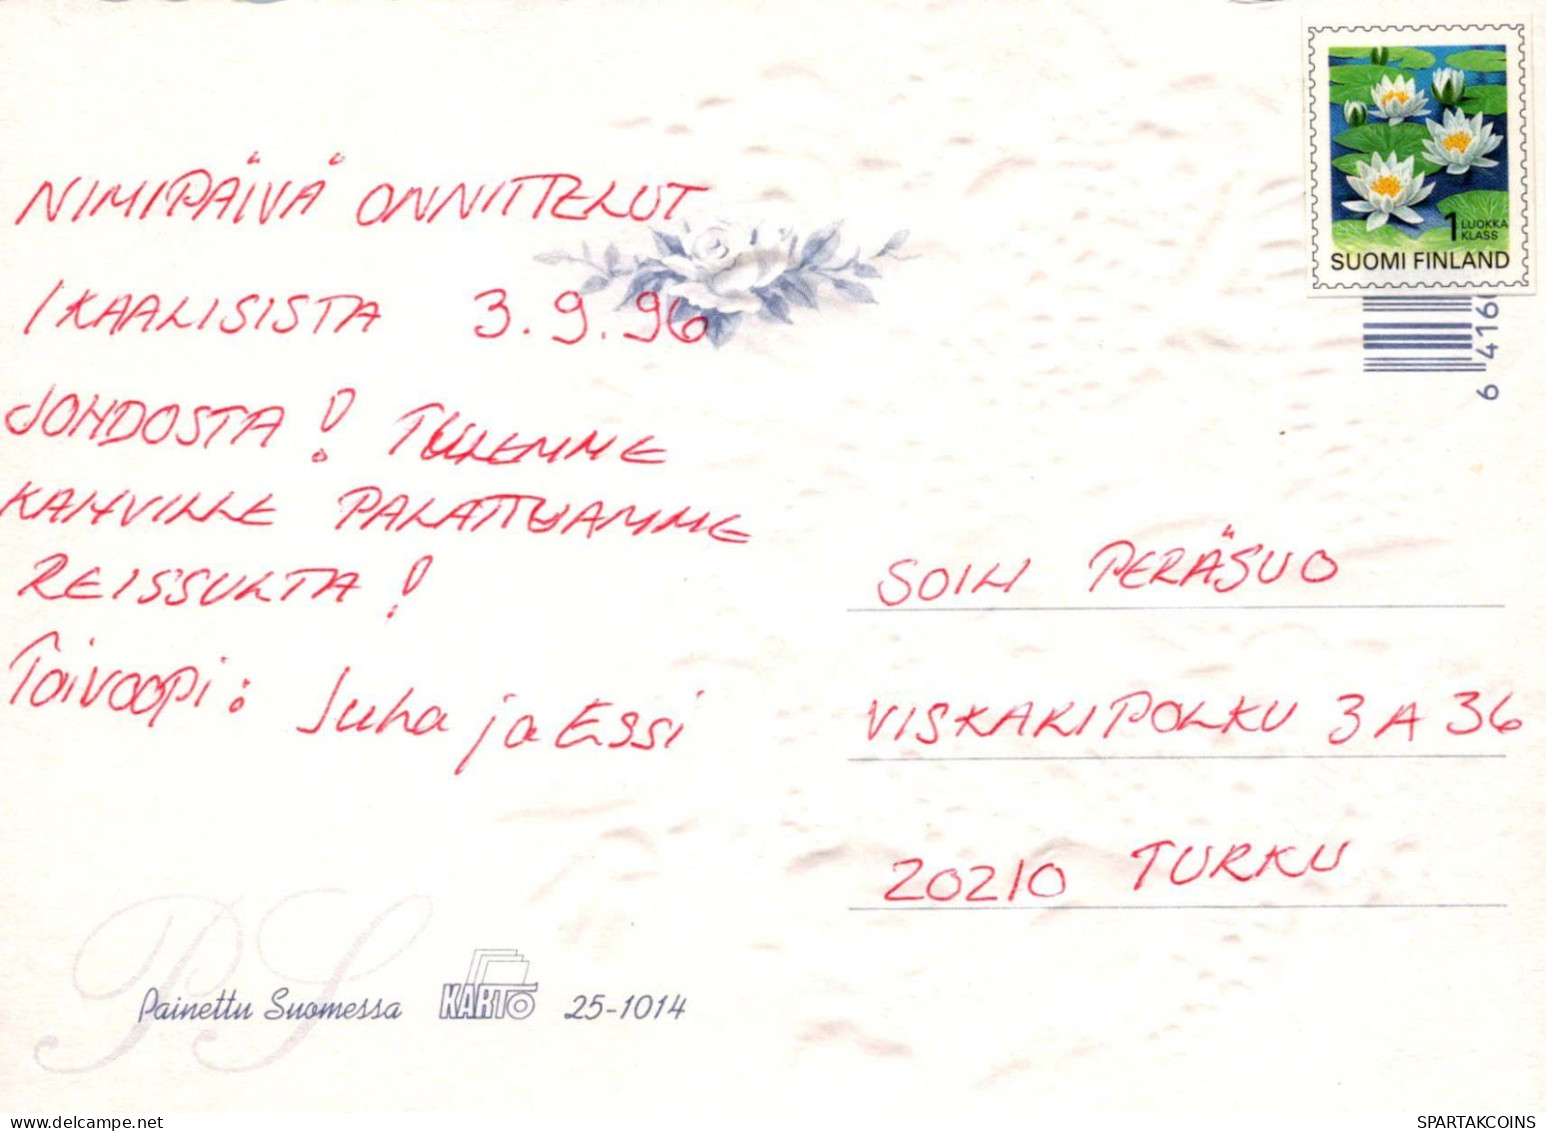 NIMIPÄIVÄ ONNITTELUT
IKAALISISTA 3.9.96
JOHDOSTA! TULEMME
KAHVILLE PALATTUAMME
REISSULTA!
Toivoopi: Juha ja Essi
SOILI PERÄSUO
VISKARIPOLKU 3 A 36
20210 TURKU
1 LUOKKA
KLASS
SUOMI FINLAND
6 416
PS
Painettu Suomessa KARTO 25-1014
SPARTAKCOINS